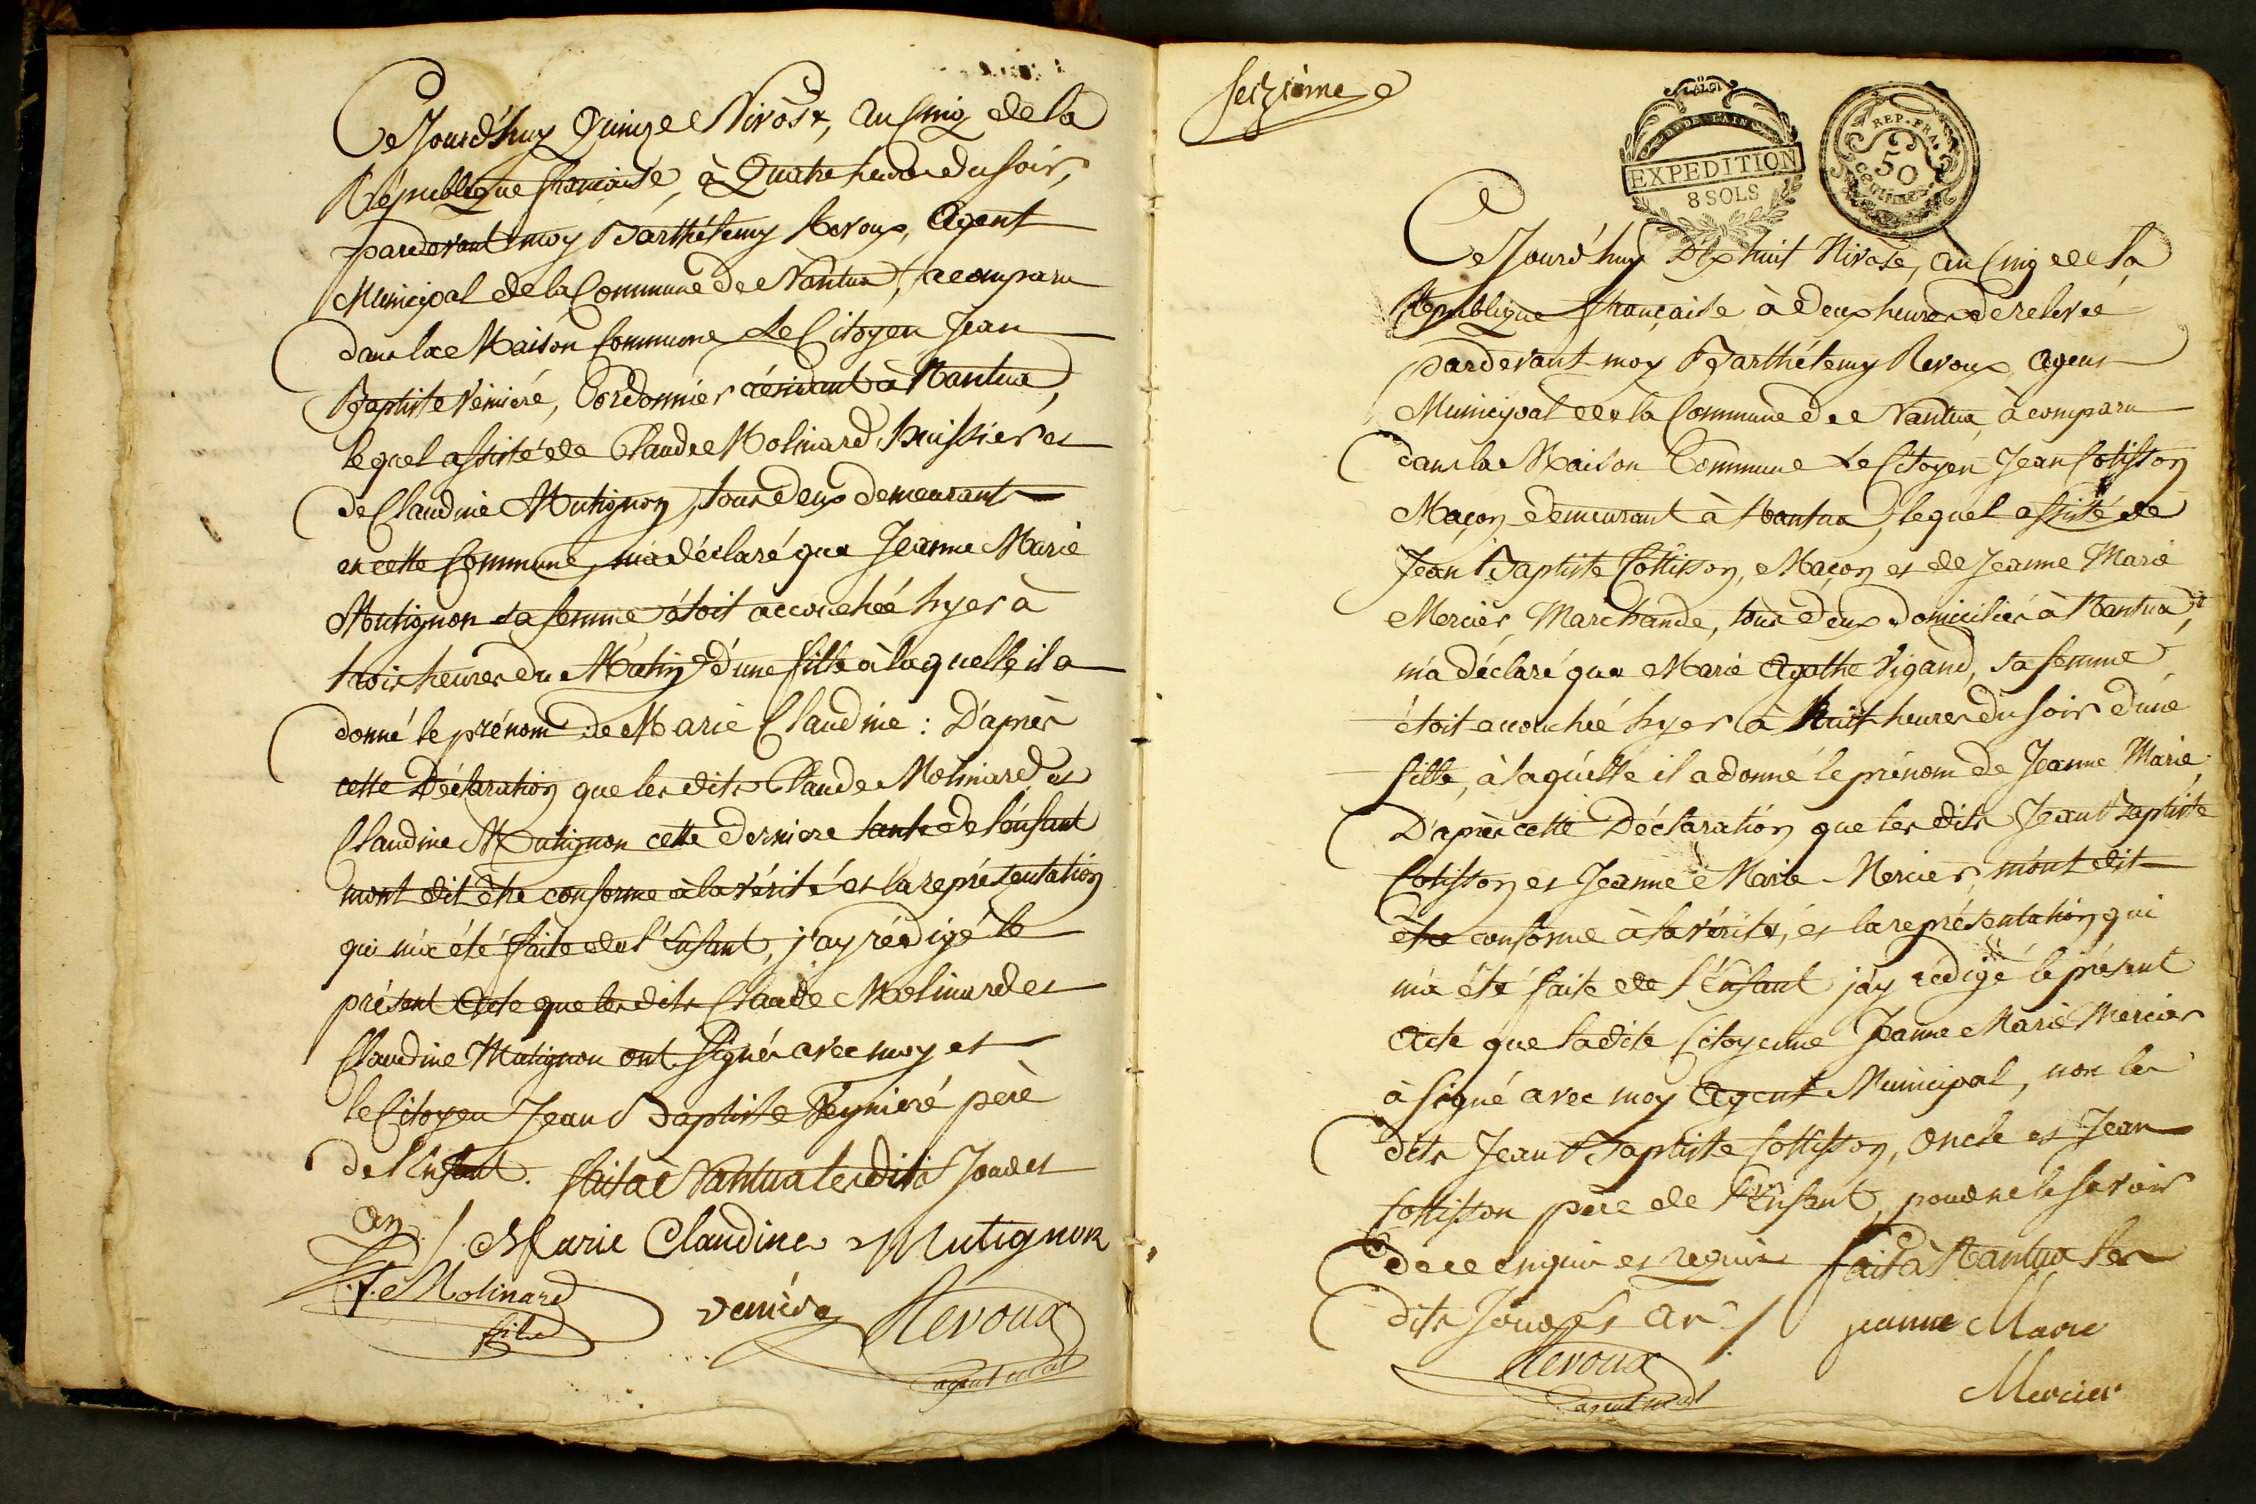 Ce Jourd'huy Quinze Nivôse, an Cinq de la
République française, à Quatre heures du soir,
pardevant moy Barthélemy Revoux, Agent
Municipal de la Commune de Nantua, a comparu
dans la Maison Commune Le Citoyen Jean
Baptiste Véniéré, Cordonnier résidant à Nantua,
lequel assisté de Claude Molinard huissier et
de Claudine Mutignon, tous deux demeurants
en cette Commune, m'a déclaré que Jeanne Marie
Mutignon sa femme étoit accouchée hyer à
trois heures du Matin d'une fille à laquelle il a
donné le prénom de Marie Claudine : D'après
cette Déclaration que les dits Claude Molinard et
Claudine Mutignon cette derniere tante de l'enfant
m'ont dit être conforme à la vérité et la représentation
qui m'a été faite de l'Enfant, j'ay rédigé le
présent Acte que les dits Claude Molinard et
Claudine Mutignon ont signés avec moy et
le Citoyen Jean Baptiste Veyniéré père
de l'Enfant. fait à Nantua les dits Jour et
an /. Marie Claudine Mutignon
Molinard
fils
Revoux
agent mal
Seizième
LA LOI
DP. DE L'AIN
EXPEDITION
8 SOLS
REP. FRA.
50
centimes
Ce Jourd'huy Dix huit Nivôse, an Cinq de la
République française à deux heures de relevée
Pardevant moy Barthélemy Revoux, Agent
Municipal de la Commune de Nantua, à comparu
dans la Maison Commune Le Citoyen Jean Cotisson
Maçon demeurant à Nantua, lequel assisté de
Jean Baptiste Cottisson, Maçon et de Jeanne Marie
Mercier, Marchande, tous deux domiciliés à Nantua,
m'a déclaré que Marie Agathe Vigand, sa femme
étoit accouchée hyer à Huit heures du soir d'une
fille, à laquelle il a donné le prénom de Jeanne Marie
D'après cette Déclaration que les dits Jean Baptiste
Cotisson et Jeanne Marie Mercier, m'ont dit
être conforme à la vérité, et la représentation qui
m'a été faite de l'Enfant j'ay rédigé le présent
Acte que ladite Citoyenne Jeanne Marie Mercier
à signé avec moy Agent Municipal, non les
dits Jean Baptiste Cottisson, oncle et Jean
Cottisson père de l'Enfant, pour ne le savoir
de ce enquis et requis fait à Nantua les
dits Jour et an /. jeanne Marie
Revoux
Mercier
agent mal